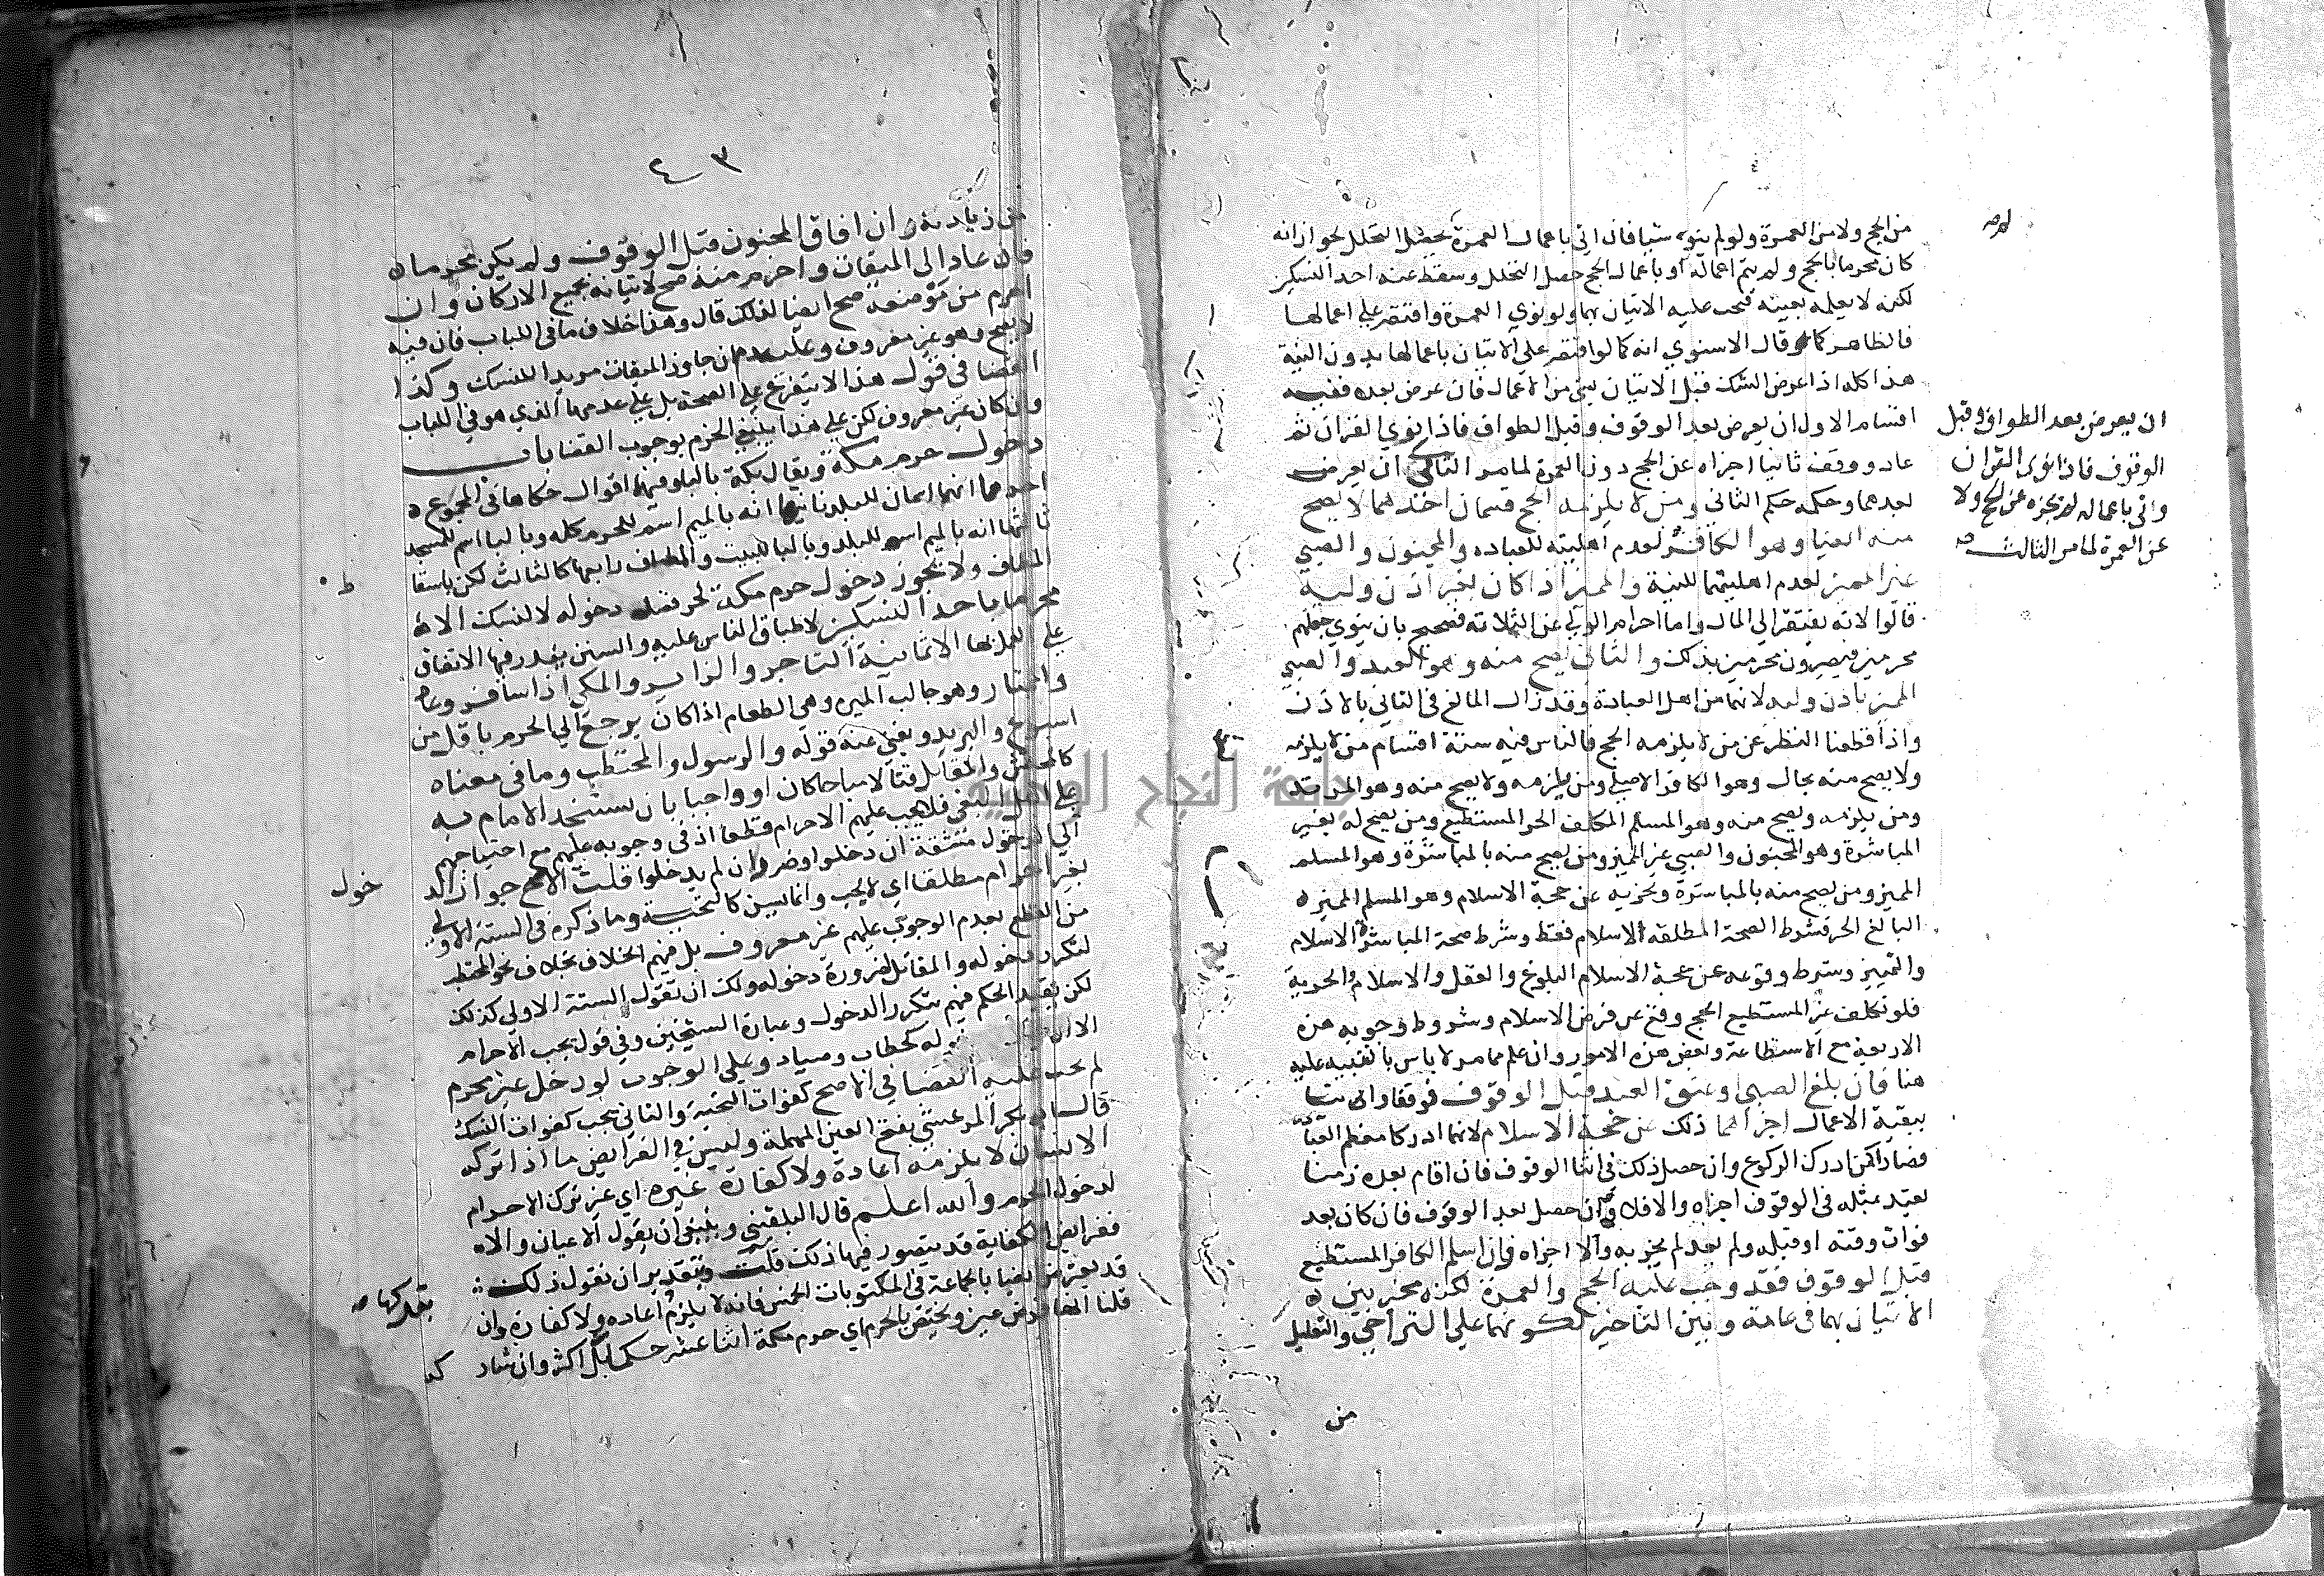 من الحج ولا من العمرة ولو لم ينو شيا فان اتى باعمال العمرة يحصل التحلل لجواز انه
كان محرما بالحج ولم يتم اعماله او باعمال الحج حصل التحلل وسقط عنه احد النسكين
لكنه لا يعلمه بعينه فيجب عليه الاتيان بهما ولو نوي العمرة واقتصر علي اعمالها
فالظاهر كما قال الاسنوي انه كما لو اقتصر علي الاتيان باعمالها بدون النية
هذا كله اذا عرض الشك قبل الاتيان بشي من الاعمال فان عرض بعده ففيه
اقسام الاول ان يعرض بعد الوقوف وقبل الطواف فاذا نوي القران ثم
عاد ووقف ثانيا اجزاه عن الحج دون العمرة لما مر الثالث ان يعرض
بعدهما وحكمه حكم الثاني ومن لا يلزمه الحج قسمان احدهما لا يصح
منه ايضا وهو الكافر لعدم اهليته للعباده والمجنون والصبي
غير المميز لعدم اهليتهما للنية والمميز اذا كان بغير اذن وليه
قالوا لانه يفتقر الي المال واما احرام الولي عن الثلاثة فصحيح بان ينوي جعلهم
محرمين فيصيرون محرمين بذلك والثاني يصح منه وهو العبد والصبي
المميز باذن وليه لانهما من اهل العبادة وقد زال المانع في الثاني بالاذن
واذا قطعنا النظر عن من لا يلزمه الحج فالناس فيه ستة اقسام من لا يلزمه
ولا يصح منه بحال وهو الكافر الاصلي ومن يلزمه ولا يصح منه وهو المرتد
ومن يلزمه ويصح منه وهو المسلم المكلف الحر المستطيع ومن يصح له بغير
المباشرة وهو المجنون والصبي غير المميز ومن يصح منه بالمباشرة وهو المسلم
المميز ومن يصح منه بالمباشرة ويجزيه عن حجة الاسلام وهو المسلم المميز
البالغ الحر فشرط الصحة المطلقة الاسلام فقط وشرط صحة المباشرة الاسلام
والتمييز وشرط وقوعه عن حجة الاسلام البلوغ والعقل والاسلام والحرية
فلو تكلف غير المستطيع الحج وقع عن فرض الاسلام وشروط وجوبه هذه
الاربعة مع الاستطاعة وبعض هذه الامور وان علم مما مر لا باس بالتنبيه عليه
هنا فان بلغ الصبي او عتق العبد قبل الوقوف فوقفا واتى
ببقية الاعمال اجزاهما ذلك عن حجة الاسلام لانهما ادركا معظم
فصار كمن ادرك الركوع وان حصل ذلك في اثنا الوقوف فان اقام بعده زمنا
يعتد بمثله في الوقوف اجزاه والا فلا وان حصل بعد الوقوف فان كان بعد
فوات وقته او قبله ولم يعد لم يجزيه والا اجزاه وان اسلم الكافر المستطيع
قبل الوقوف فقد وجب عليه الحج والعمرة لكنه مخير بين
الاتيان بهما في عامه وبين التاخير لكونهما علي التراخي والتعليل
من
ان يعرض بعد الطواف وقبل
الوقوف فاذا نوى القران
واتى باعماله لم يجزه عن الحج ولا
عن العمرة لما مر الثالث صح
٤٣
من زيادته وان افاق المجنون قبل الوقوف ولم يكن محرما
فان عاد الى الميقات واحرم منه صح لاتيانه بجميع الاركان وان
احرم من موضعه صح ايضا لذلك قال وهذا خلاف ما في اللباب فان فيه
لا يصح وهو غير معروف وعليه دم ان جاوز الميقات مريدا للنسك وكذا
القضا في قول هذا لا يتفرع علي الصحة بل علي عدمها الذي هو في اللباب
وان كان غير معروف لكن علي هذا ينبغي الجزم بوجوب القضا باب
دخول حرم مكة ويقال بكة بالبا وفيهما اقوال حكاها في المجموع
احدهما انهما اسمان للبلد ثانيها انه بالميم اسم للحرم كله وبالبا اسم للمسجد
ثالثها انه بالميم اسم للبلد وبالبا للبيت والمطاف رابعها كالثالث لكن باسقاط
المطاف ولا يجوز دخول حرم مكة لحر قصد دخوله لا لنسك الا
محرما باحد النسكين لاطباق الناس عليه والسنن يندر فيها الاتفاق
علي العمل بها الا ثمانية التاجر والزاير والمكي اذا سافر وعاد
والممتار وهو جالب الميرة وهي الطعام اذا كان يرجع الي الحرم باقل من
اسبوع والبريد ويغني عنه قوله والرسول والمحتطب وما في معناه
كالمحتش والمقاتل قتالا مباحا كان او واجبا بان يستنجد الامام به
علي اهل البغي فلا يجب عليهم الاحرام قطعا اذ في وجوبه عليهم مع احتياجهم
الي الدخول مشقة ان دخلوا وضرر ان لم يدخلوا قلت الاصح جواز الد
خول
بغير احرام مطلقا اي لا يجب وانما يسن كالتحية وما ذكره في الستة الاولي
من القطع بعدم الوجوب عليهم غير معروف بل فيهم الخلاف بخلاف نحو المحتطب
لتكرر دخوله والمقاتل لضرورة دخوله ولك ان تقول الستة الاولي كذلك
لكن بقيد الحكم فيهم بتكرر الدخول وعبارة الشيخين وفي قول يجب الاحرام
كحطاب وصياد وعلي الوجوب لو دخل غير محرم
لم يجب عليه القضا في الاصح كفوات التحية والثاني يجب كفوات النسك
قال ابو بكر المرعشي بفتح العين المهملة وليس في الفرايض ما اذا تركه
الانسان لا يلزمه اعادة ولا كفارة غيره اي غير ترك الاحرام
لدخول الحرم والله اعلم قال البلقيني وينبغي ان يقول الاعيان والا
ففرايض الكفاية قد يتصور فيها ذلك قلت وبتقدير ان نقول ذلك
قد يعترض ايضا بالجماعة في المكتوبات الخمس فانه لا يلزم بتركها اعاده ولا كفارة وان
قلنا انها فرض عين ويختص بالحرم اي حرم مكة اثنا عشر حكما بل اكثر وان شاركه